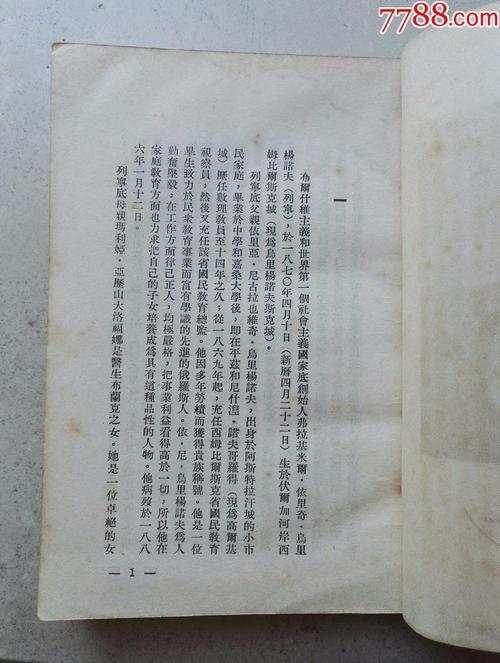 7788.com
一
布爾什維主義和世界第一個社會主義國家底創始人弗拉基米爾·依里奇·烏里
楊諾夫(列寧),於一八七〇年四月十日(新曆四月二十二日)生於伏爾加河岸西
姆比爾斯克城(現爲烏里楊諾夫斯克城)。
列寧底父親依里亞·尼古拉也維奇·烏里楊諾夫,出身於阿斯特拉汗城的小市
民家庭,畢業於中學和嘉桑大學後,即在平茲和尼什涅·諾夫哥羅得(現爲高爾基
城)歷任數理教員至十四年之久;從一八六九年起,充任西姆比爾斯克省國民教育
視察員,然後又充任該省國民教育總監。他因多年勞績而獲得貴族稱號。他是一位
畢生致力於民衆教育事業而富有學識的先進的俄羅斯人。依·尼·烏里楊諾夫爲人
勤奮堅毅,在工作方面律己正人,均極嚴格,把事業利益看得高於一切,所以他在
家庭教育方面也力求把自己的子女培養成爲具有這種品性的人物。他病歿於一八八
六年一月十二日。
列寧底母親瑪利婭·亞歷山大洛福娜是醫生布蘭克之女。她是一位卓絕的女
— 1 —